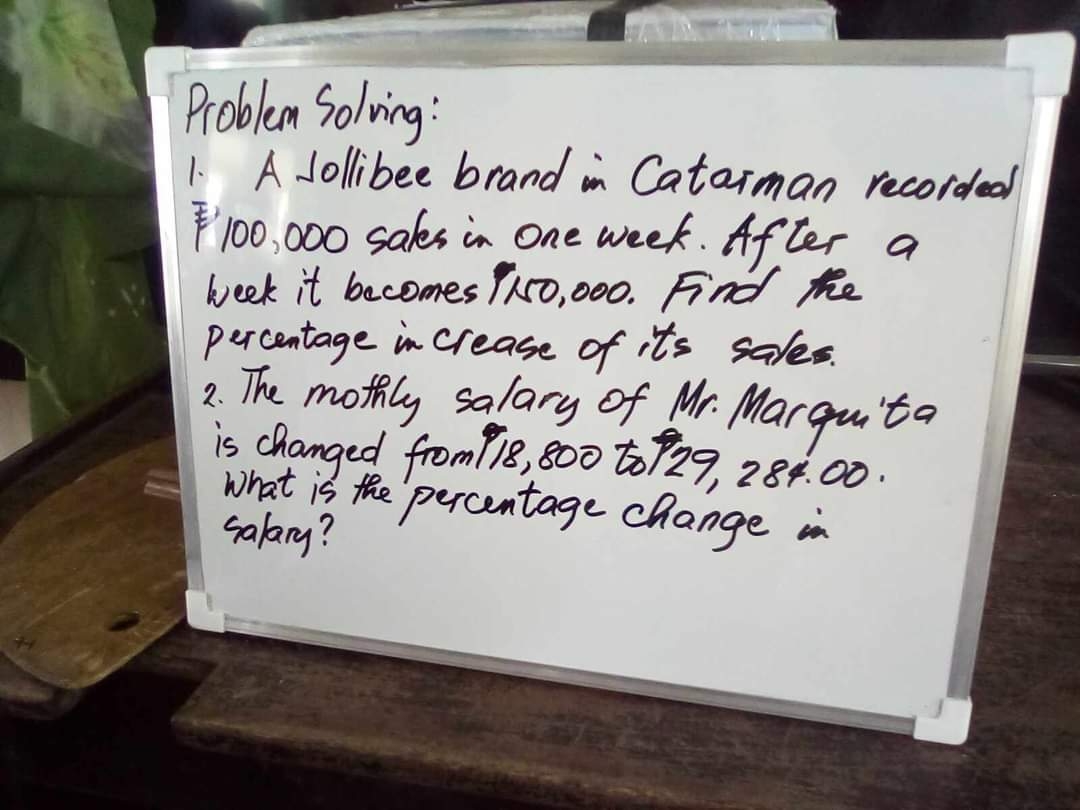 Problem Solving:
1. A Jollibee brand in Catarman recorded
₱100,000 sales in one week. After a
week it becomes ₱150,000. Find the
percentage increase of its sales.
2. The mothly salary of Mr. Marquita
is changed from ₱18,800 to ₱29,284.00.
What is the percentage change in
salary?